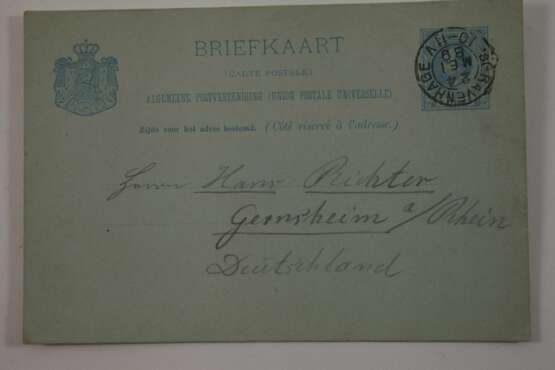 BRIEFKAART
(CARTE POSTALE)
ALGEMEENE POSTVEREENIGING (UNION POSTALE UNIVERSELLE)
Zijde voor het adres bestemd. (Côté réservé à l'adresse.)
'S-GRAVENHAGE
Herrn Hans Richter
Gernsheim a/Rhein
Deutschland